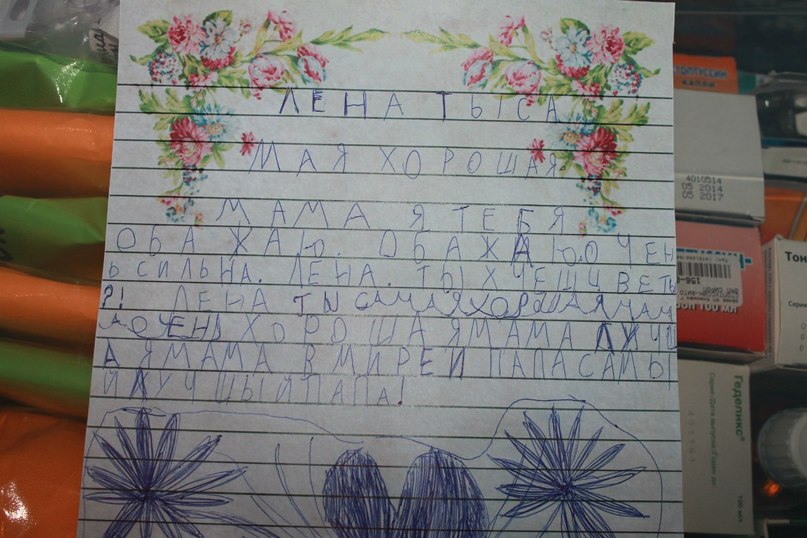 ЛЕНА ТЫ СА
МАЯ ХОРОШАЯ
МАМА Я ТЕБЯ
ОБАЖАЮ. ОБАЖАЮ ОЧЕН
Ь СИЛЬНА. ЛЕНА. ТЫ ХЧЕШ ЦВЕТЫ
?! ЛЕНА ТЫ САМАЯ ХОРШАЯ МАМ
А ОЧЕНЬ ХОРОША Я МАМА ЛУЧШ
А Я МАМА В МИРЕ И ПАПА САМЫ
Й ЛУЧШЫЙ ПАПА!
СТОПТУССИН
КАПЛИ
4010514
05 2014
05 2017
Тон
Геделикс
100 мл